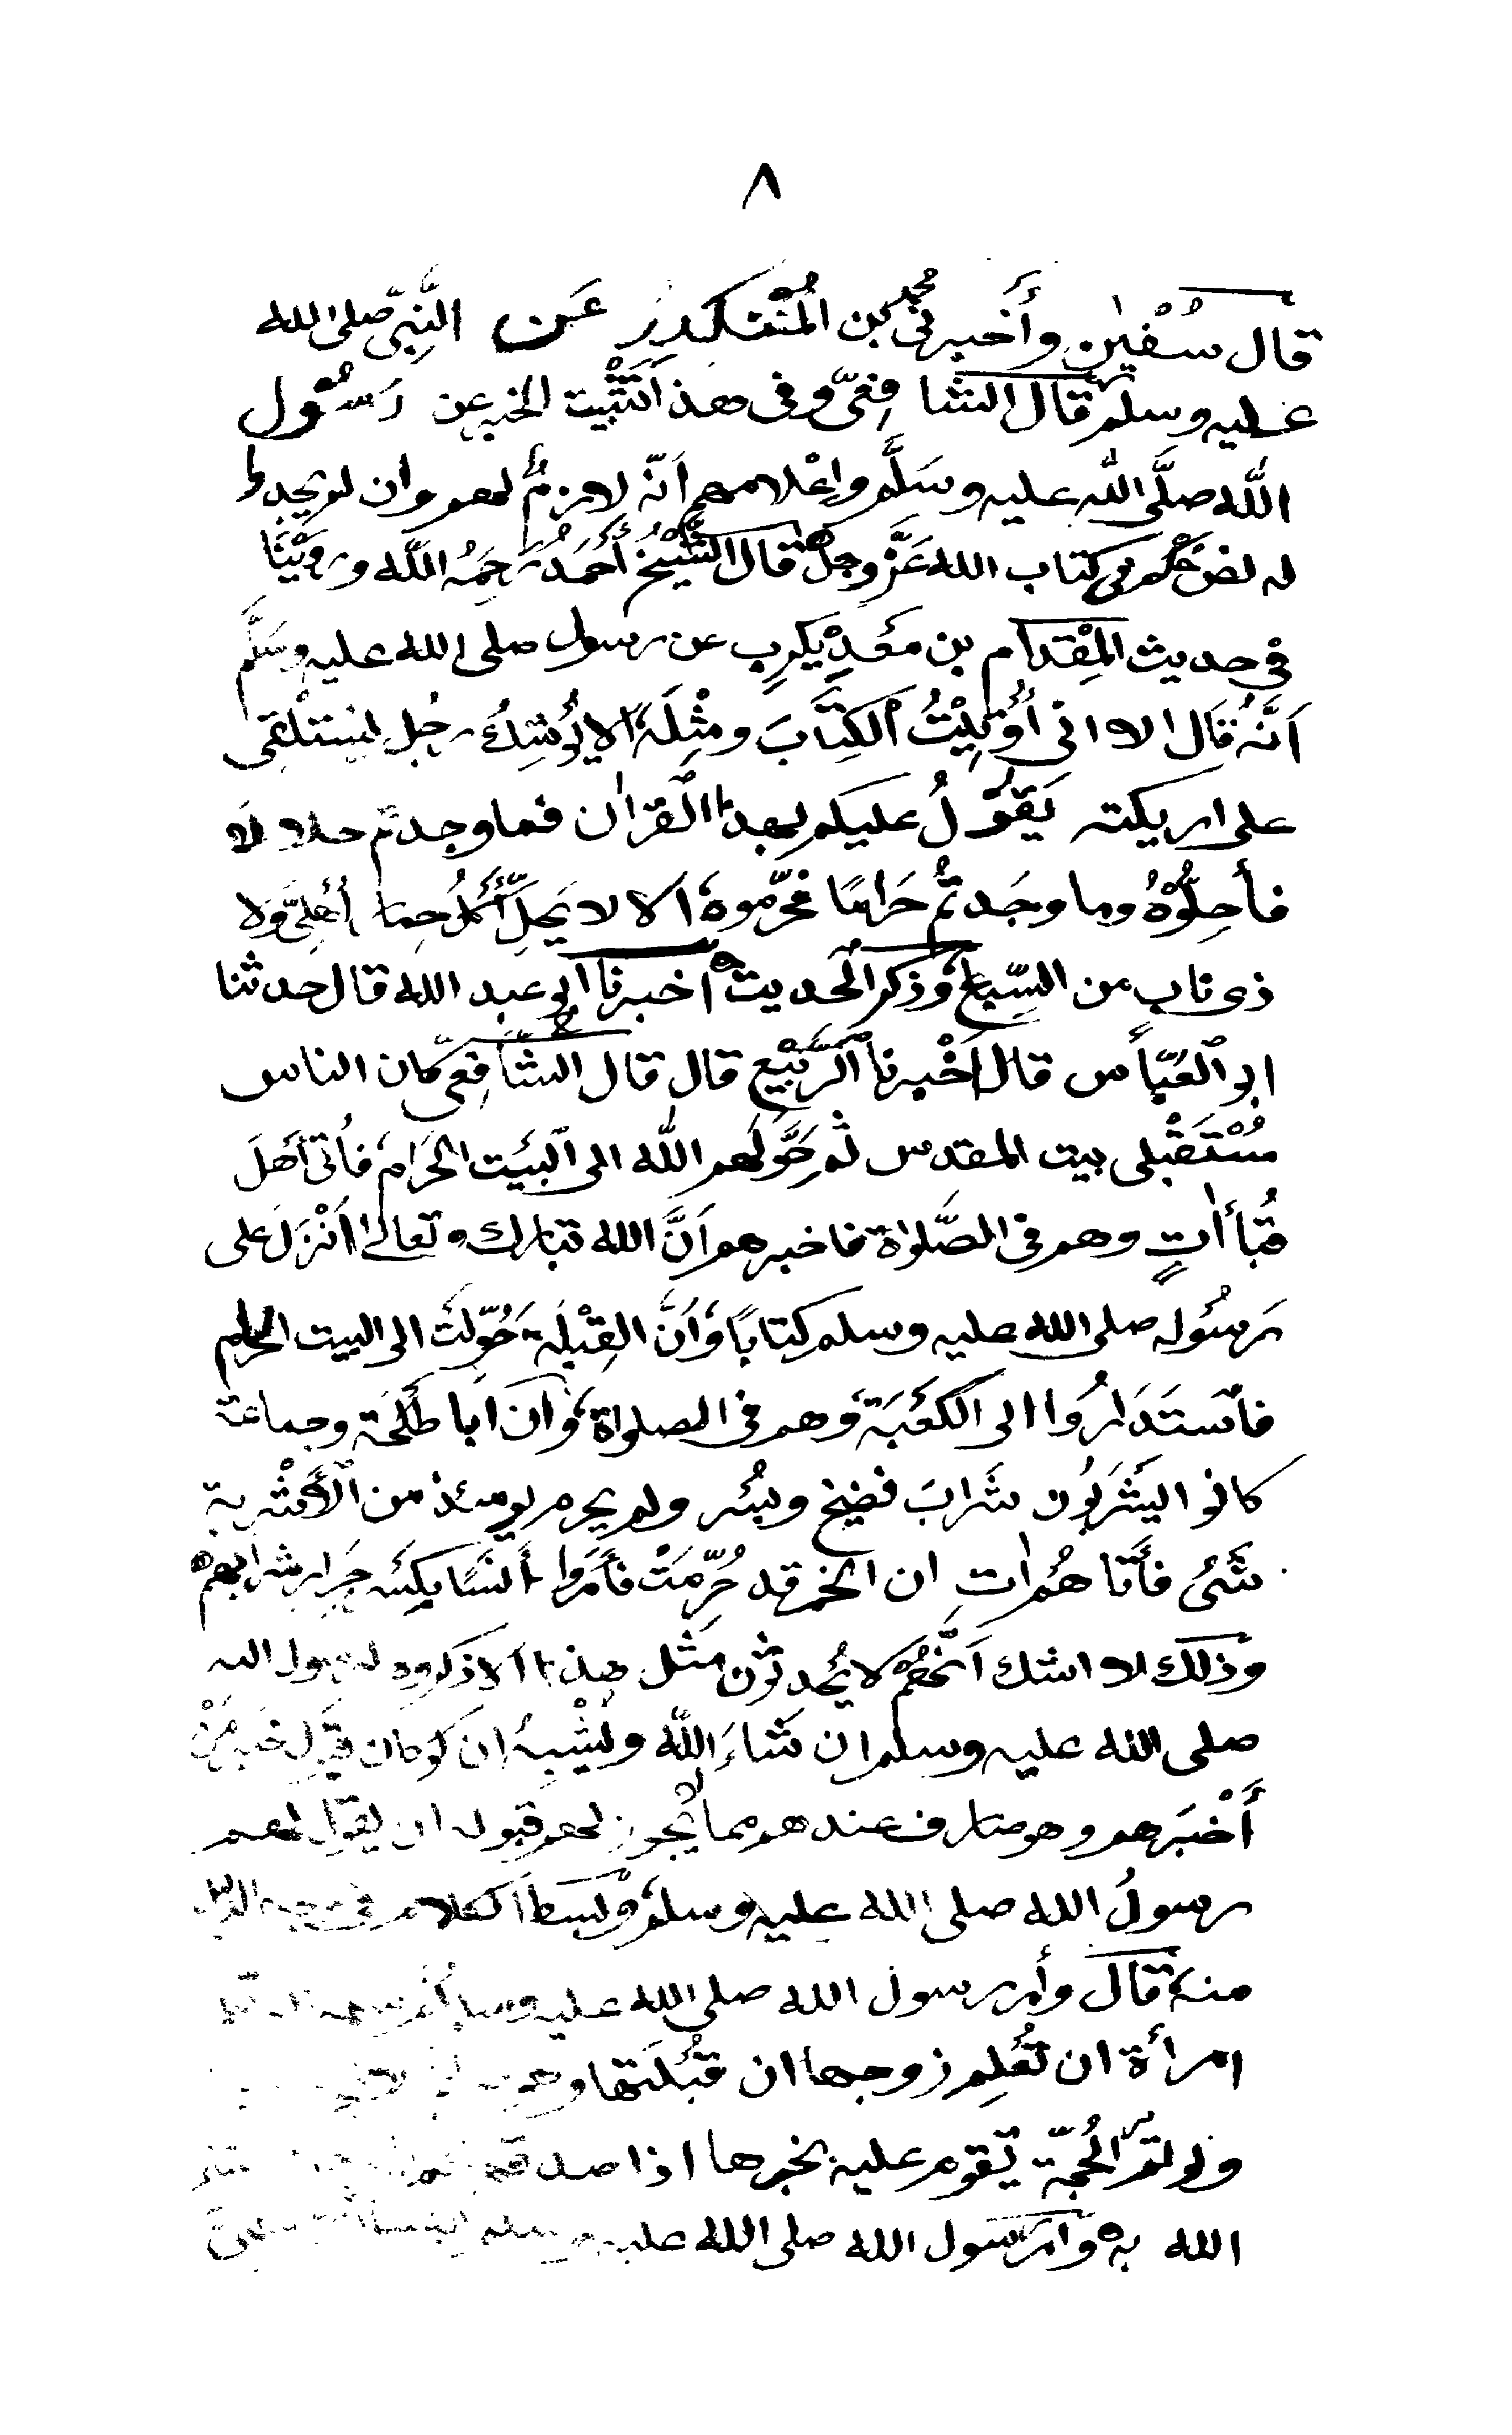 ٨
قال سُفْيٰن وأَخبرنى محمد بن المُنْكدر عَن النَّبِىّ صلى الله
عليه وسلم قال الشافِعىّ وفى هذا تثْبيت الخبر عن رَسُول
اللّٰه صلَّى اللّٰه عليه وسَلَّم وإعْلامهم أنّه لازمٌ لهم وان لم يجدوا
له نص حُكم فى كتاب الله عَزّ وجلّ قال الشَّيْخُ أَحْمَدُ رَحِمَهُ اللّٰه ورَوَيْنَا
فى حديث المِقْدام بن مَعْدِيْكرِب عن رسول صلى الله عليه وسَلَّم
اَنَّهُ قَال الا انى أُوْتِيْتُ الكِتَابَ ومِثْلَهُ الا يُوشِكُ رجُل يستلقى
على اريكته يَقُوْلُ عليكم بهذا القراٰن فما وجدتم حلالا
فأحِلُّوْهُ وما وجَدتمُ حَرَامًا فحَرِّموه الا لا يَحِلُّ أَكْلُ حمار أهْلِىّ ولا
ذى نابٍ من السِّباع وذكر الحديث أخبرنا ابو عبد الله قال حدثنا
ابو العَبّاس قال اَخْبرنا الرَّبِيْع قال قال الشافِعىّ كان الناس
مُسْتَقْبلى بيت المقدس ثم حَوَّلَهم اللّٰه الى البَيْت الحَرَام فأتى أهلَ
قُبَأ اٰتٍ وهم فى الصَّلوٰة فاخبرهم اَنَّ الله تبارك وتعالى اَنْزَلَ على
رسُوله صلى الله عليه وسلم كتابًا وَاَنَّ القِبْلَة حُوِّلَتْ الى البيت الحرام
فاسْتَدَارُوا الى الكَعْبَة وهم فى الصلواة وَاَن اَبا طَلْحَة وجماعة
كانوا يَشْرَبُون شَرابَ فضيخ وبُسْر ولم يحرم يومئذ من الأَشْربة
شَىْءٌ فأتاهُم اٰتٍ ان الخمر قد حُرِّمَتْ فأَمَرُوا أُنَسًا بِكَسْر جِرَار شرابهم
وذٰلك لا اشك اَنَّهُمْ لا يُحدثون مثل هذا الا ذكروه لرسول الله
صلى الله عليه وسلم ان شَاءَ اللّٰه ويُشْبِهُ ان لَو كان قَبُول خبر مَنْ
أَخْبَرهم وهو صادق عندهم مما لا يجوز لهم قبوله ان يقول لهم
رسولُ الله صلى الله عليه وسلم وبَسَط الكلام فى
منه قال وأمر رسول الله صلى الله عليه وسلم
امرأة ان تُعْلِم زوجها ان قَبَّلَتها وهو
ولو لم تَرَ الحُجّة تقوم عليه بخبرها اذا صدقه
الله به وأمر رسول الله صلى الله عليه وسلم